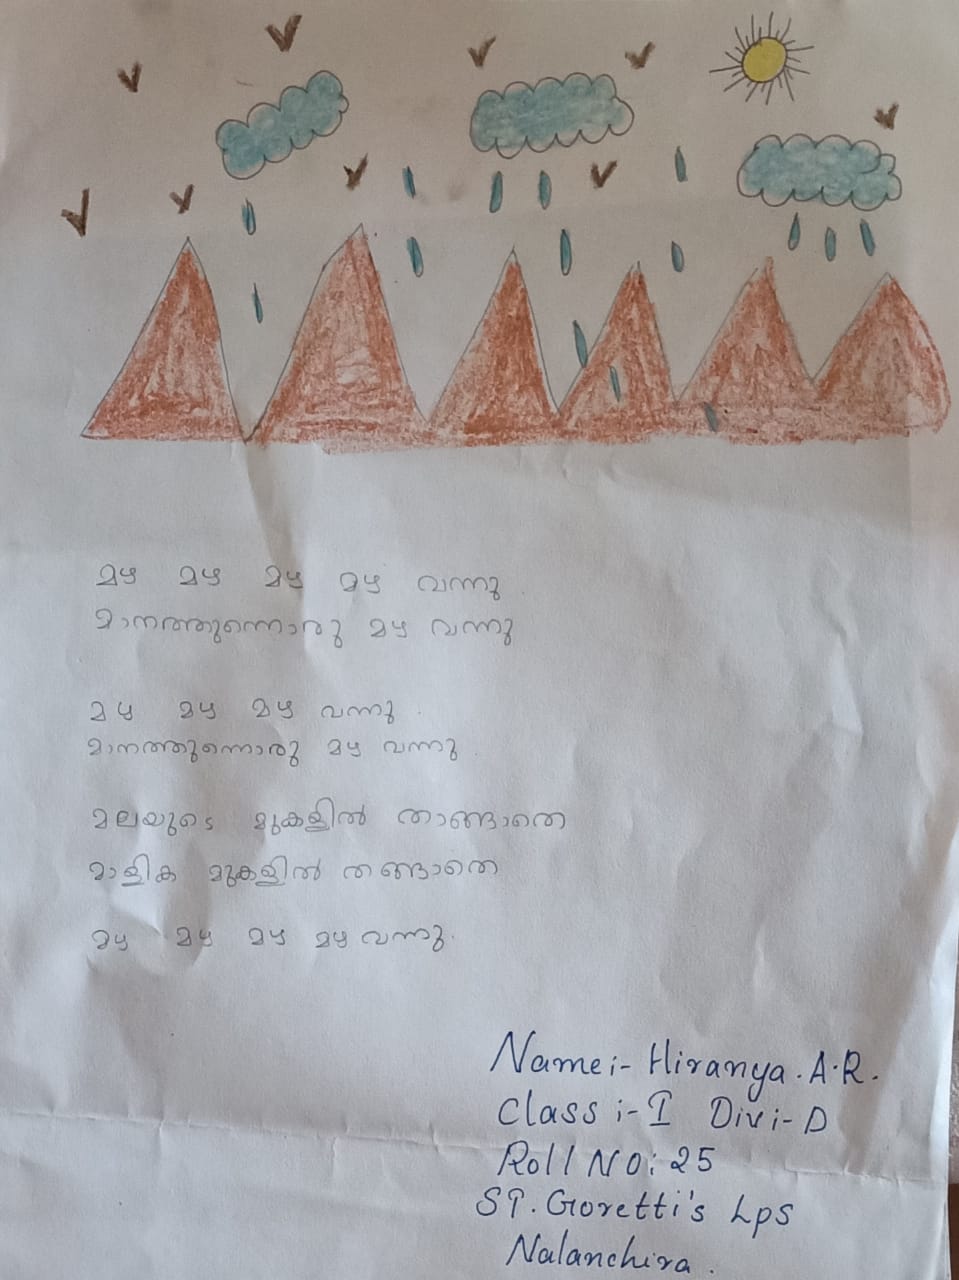 മഴ മഴ മഴ മഴ വന്നു
മാനത്തുന്നൊരു മഴ വന്നു
മഴ മഴ മഴ വന്നു.
മാനത്തുന്നൊരു മഴ വന്നു.
മലയുടെ മുകളിൽ താങ്ങാതെ
മാളിക മുകളിൽ തങ്ങാതെ
മഴ മഴ മഴ മഴ വന്നു.
Name:- Hiranya.A.R.
Class:-I Div:-D
Roll NO: 25
ST. Goretti's Lps
Nalanchira.